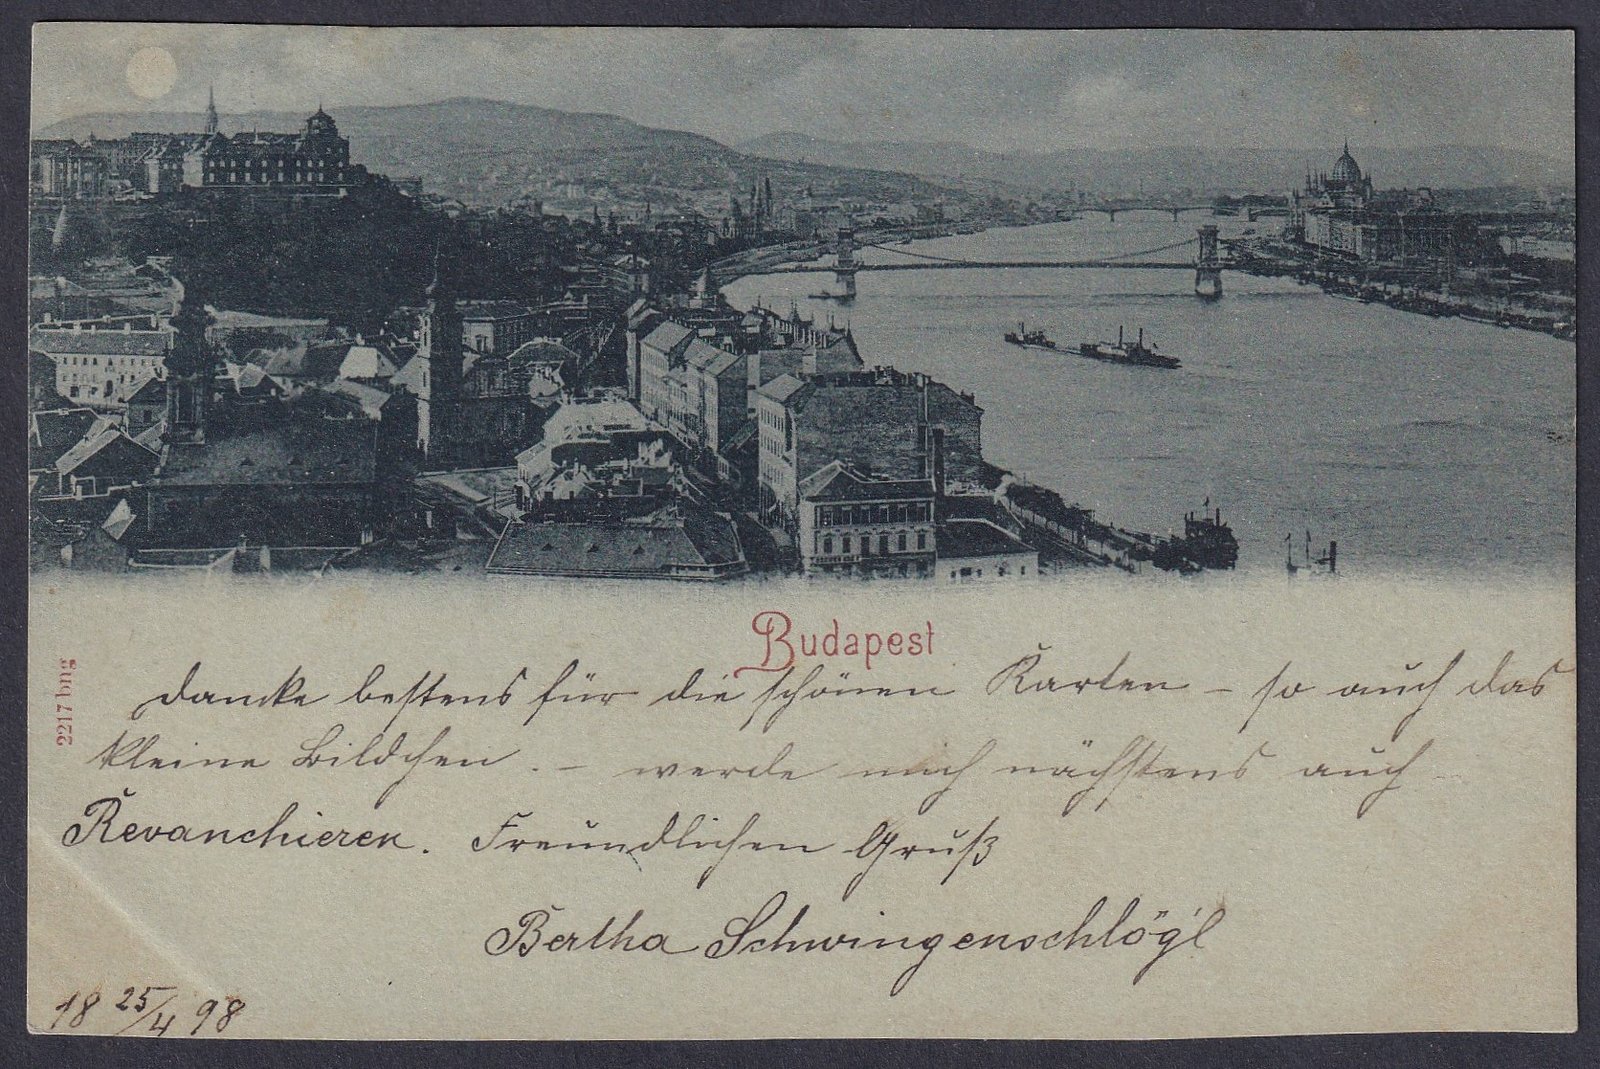 Budapest
2217 bng
Dancke bestens für die schönen Karten – so auch das
kleine Bildchen. – werde mich nächstens auch
Revanchieren. Freundlichen Gruß
Bertha Schwingenschlögl
18 25/4 98